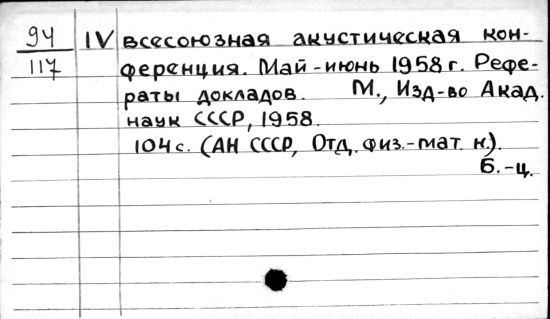 94 IV всесоюзная акустическая кон-
117 ференция. Май-июнь 1958 г. Рефе-
раты докладов. М., Изд-во Акад.
наук СССР, 1958.
104 с. (АН СССР, Отд. физ.-мат. н.).
Б.-ц.